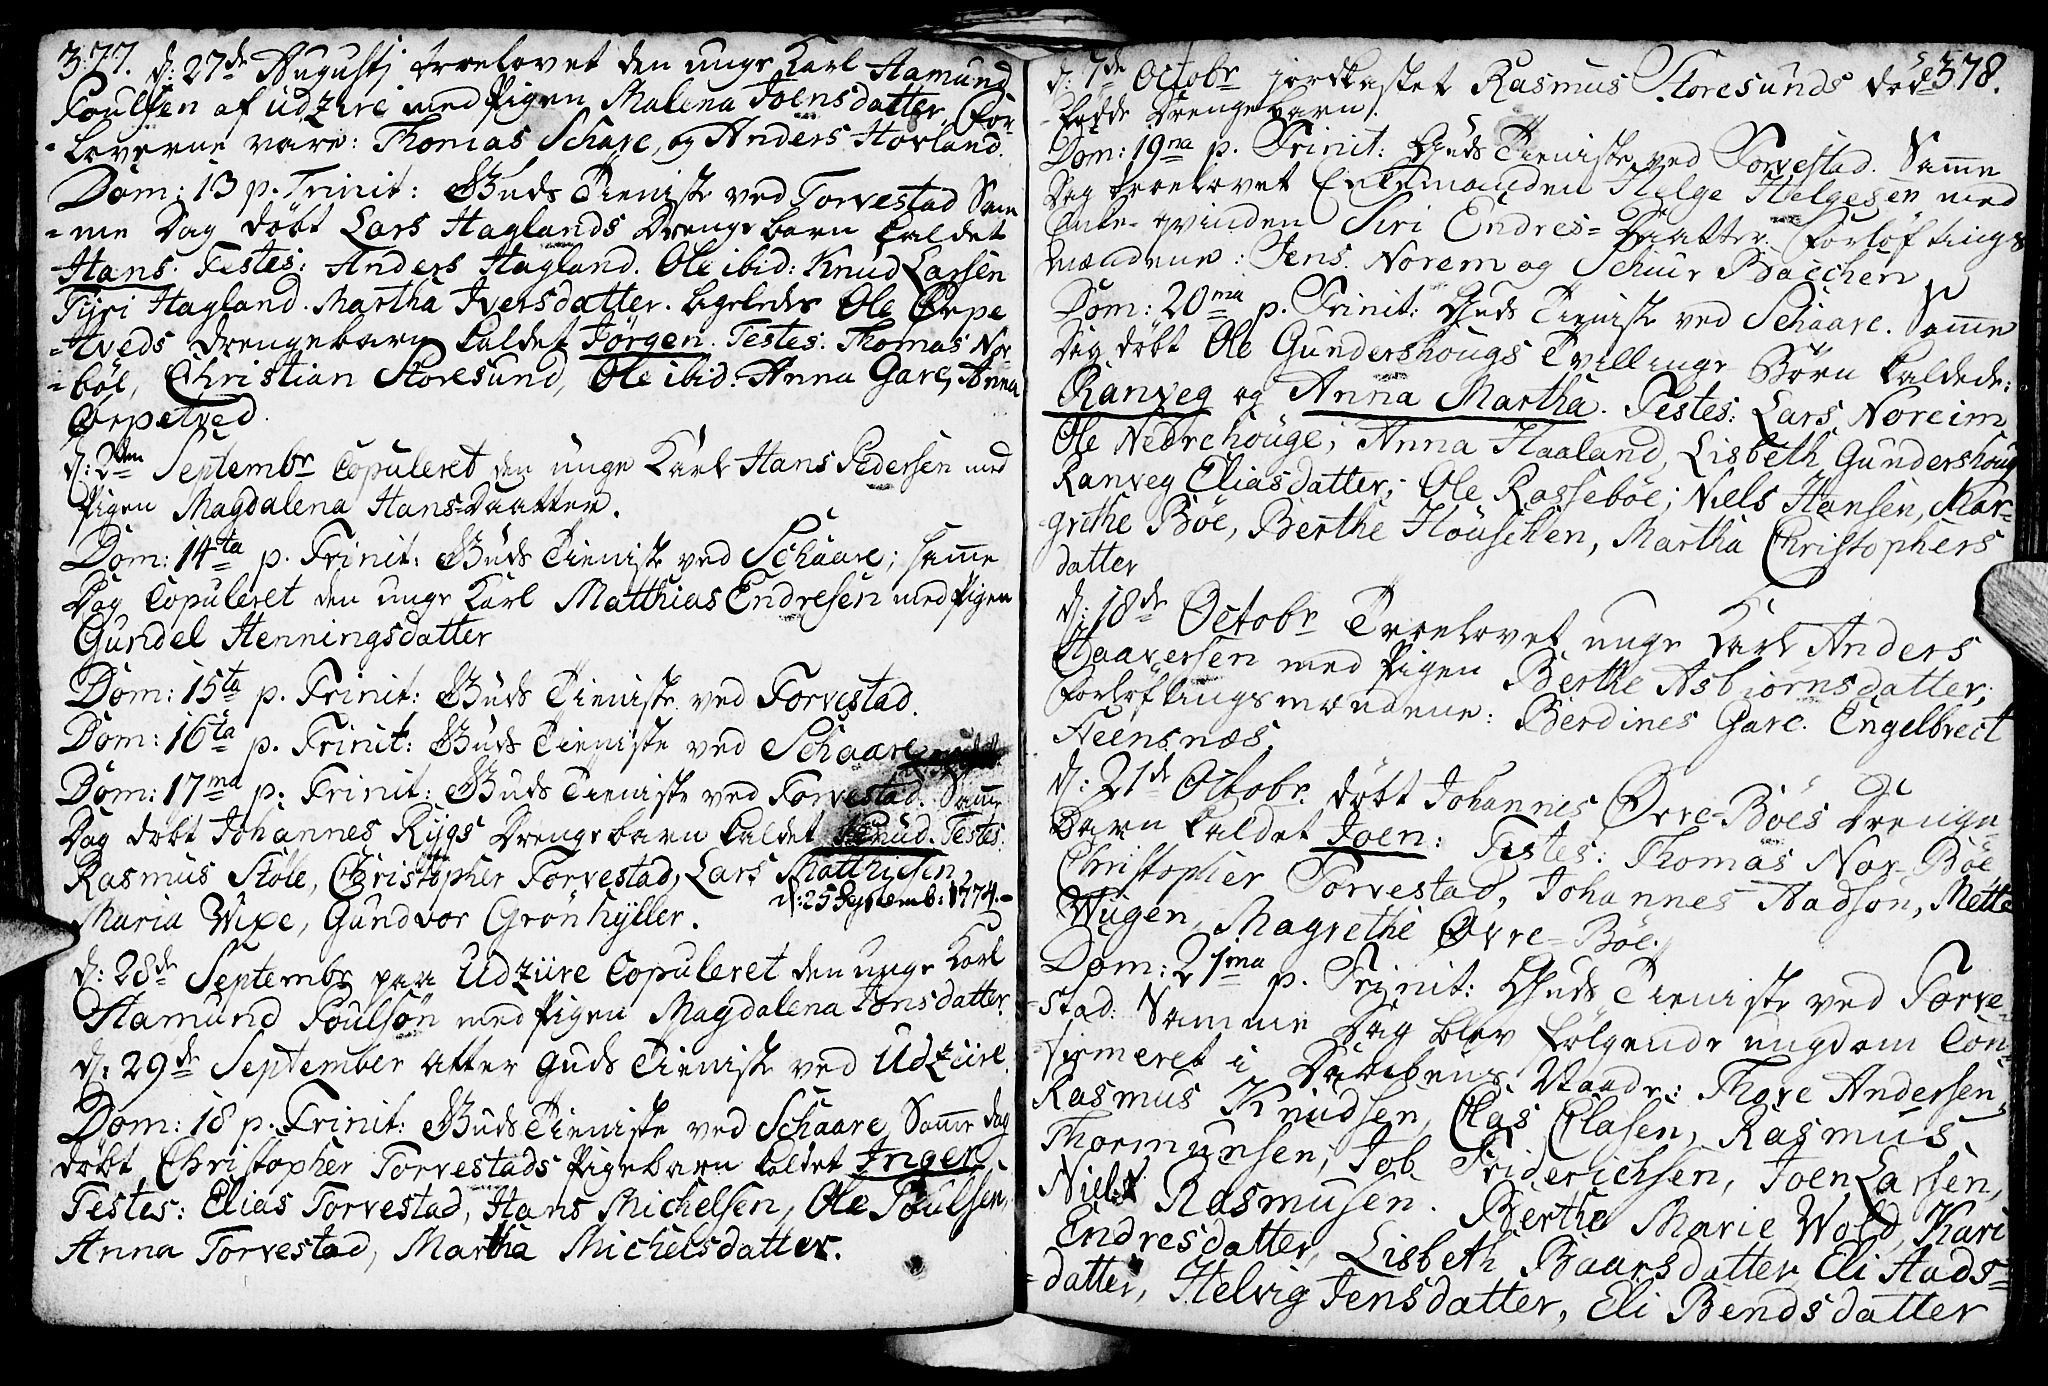 377. d: 27de Augustj troelovet den unge Karl Hamund
Poulsen af Udzire med Pigen Malena Joensdatter, For-
-loverne vare: Thomas Schare, og Anders Hovland.
Dom: 13 p. Trinit: Guds Tieniste ved Torvestad Sam
-me Dag döbt Lars Haglands Drengebarn kaldet
Hans. Testes: Anders Hagland. Ole ibid: Knud Larsen
Tyri Hagland. Martha Iversdatter. ligeledes Ole Ørpe
-tveds Drengebarn kaldet Jörgen. Testes: Thomas Nor-
-böl, Christian Storesund, Ole ibid: Anna Gare, Anna
Ørpetved.
d: 2den Septembr Copuleret den unge Karl Hans Pedersen med
Pigen Magdalena Hans-Daatter.
Dom: 14ta p. Trinit: Guds Tieniste ved Schaare; samme
Dag Copuleret den unge Karl Matthias Endresen med Pigen
Gundel Henningsdatter
Dom: 15ta p. Trinit: Guds Tieniste ved Torvestad.
Dom: 16ta p. Trinit: Guds Tieniste ved Schaare
Dom: 17ma p. Trinit: Guds Tieniste ved Torvestad. Samme
Dag döbt Johannes Rygs Drengebarn kaldet Knud. Testes:
Rasmus Stöle, Christopher Torvestad, Lars Matthiesen,
Maria Vixe, Gundvor Grönhyller. d: 25 Septemb: 1774.-
d: 28de Septembr paa Udziire Copuleret den unge Karl
Hamund Poulsön med Pigen Magdalena Jonsdatter.
d: 29de September atter Guds Tieniste ved Udziire.
Dom: 18 p. Trinit: Guds Tieniste ved Schaare, Samme dag
döbt Christopher Torvestads Pigebarn kaldet Inger
Testes: Elias Torvestad, Hans Michelsen, Ole Poulsen,
Anna Torvestad, Martha Michelsdatter.
378.
d: 7de Octobr jordkastet Rasmus Storesunds död-
-födde Drengebarn.
Dom: 19na p. Trinit: Guds Tieniste ved Torvestad. Samme
Dag troelovet Enkemanden Helge Helgesen med
Enke-qvinden Siri Endres-Daatter. Forlöftings
mændene: Jens Norem og Schiur Bacchen
Dom: 20ma p. Trinit: Guds Tieniste ved Schaare. Samme
Dag döbt Ole Gundershougs Tvillinge Börn kaldede:
Ranveg og Anna Martha. Testes: Lars Noreim
Ole Nedrehouge, Anna Haaland, Lisbeth Gundershoug
Ranveg Eliasdatter; Ole Rosseböe; Niels Hansen, Mar-
grethe Böe, Berthe Houschen, Martha Christophers
datter
d: 18de Octobr Troelovet unge Karl Anders
Haaversen med Pigen Berthe Asbiörnsdatter,
Forlöftingsmændene: Berdines Gare. Engelbrect
Steensnæs
d: 21de Octobr. döbt Johannes Øvre-Böes Drenge-
Barn kaldet Joen: Testes: Thomas Nor-Böe
Christopher Torvestad, Johannes Aadsön, Mette
Wiigen, Magrethe Øvre-Böe.
Dom: 21ma p. Trinit: Guds Tieniste ved Torve-
-stad. Samme Dag blev fölgende ungdom Con-
-firmeret i Daabens Naade: Thore Andersen,
Rasmus Knudsen, Clas Clasen, Rasmus
Thormunsen, Job Friderichsen, Joen Larsen,
Niels Rasmusen. Berthe Marie Wold, Kari
Endresdatter, Lisbeth Baarsdatter, Eli Aads-
-datter, Helvig Jensdatter, Eli Bendsdatter